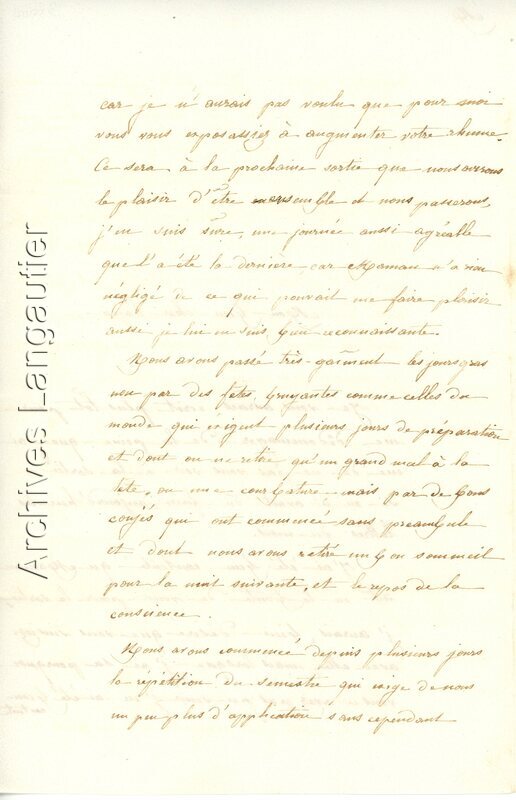 car je n'aurais pas voulu que pour moi
vous vous exposassiez à augmenter votre rhume.
Ce sera à la prochaine sortie que nous aurons
le plaisir d'être ensemble et nous passerons,
j'en suis sûre, une journée aussi agréable
que l'a été la dernière car Maman n'a rien
négligé de ce qui pouvait me faire plaisir
aussi je lui en suis bien reconnaissante.
Nous avons passé très-gaîment les jours gras
non par des fêtes bruyantes comme celles du
monde qui exigent plusieurs jours de préparation
et dont on ne retire qu'un grand mal à la
tête, ou une courbature mais par de bons
congés qui ont commencé sans préambule
et dont nous avons retiré un bon sommeil
pour la nuit suivante, et le repos de la
conscience.
Nous avons commencé depuis plusieurs jours
la répétition du semestre qui exige de nous
un peu plus d'application sans cependant
Archives Langautier